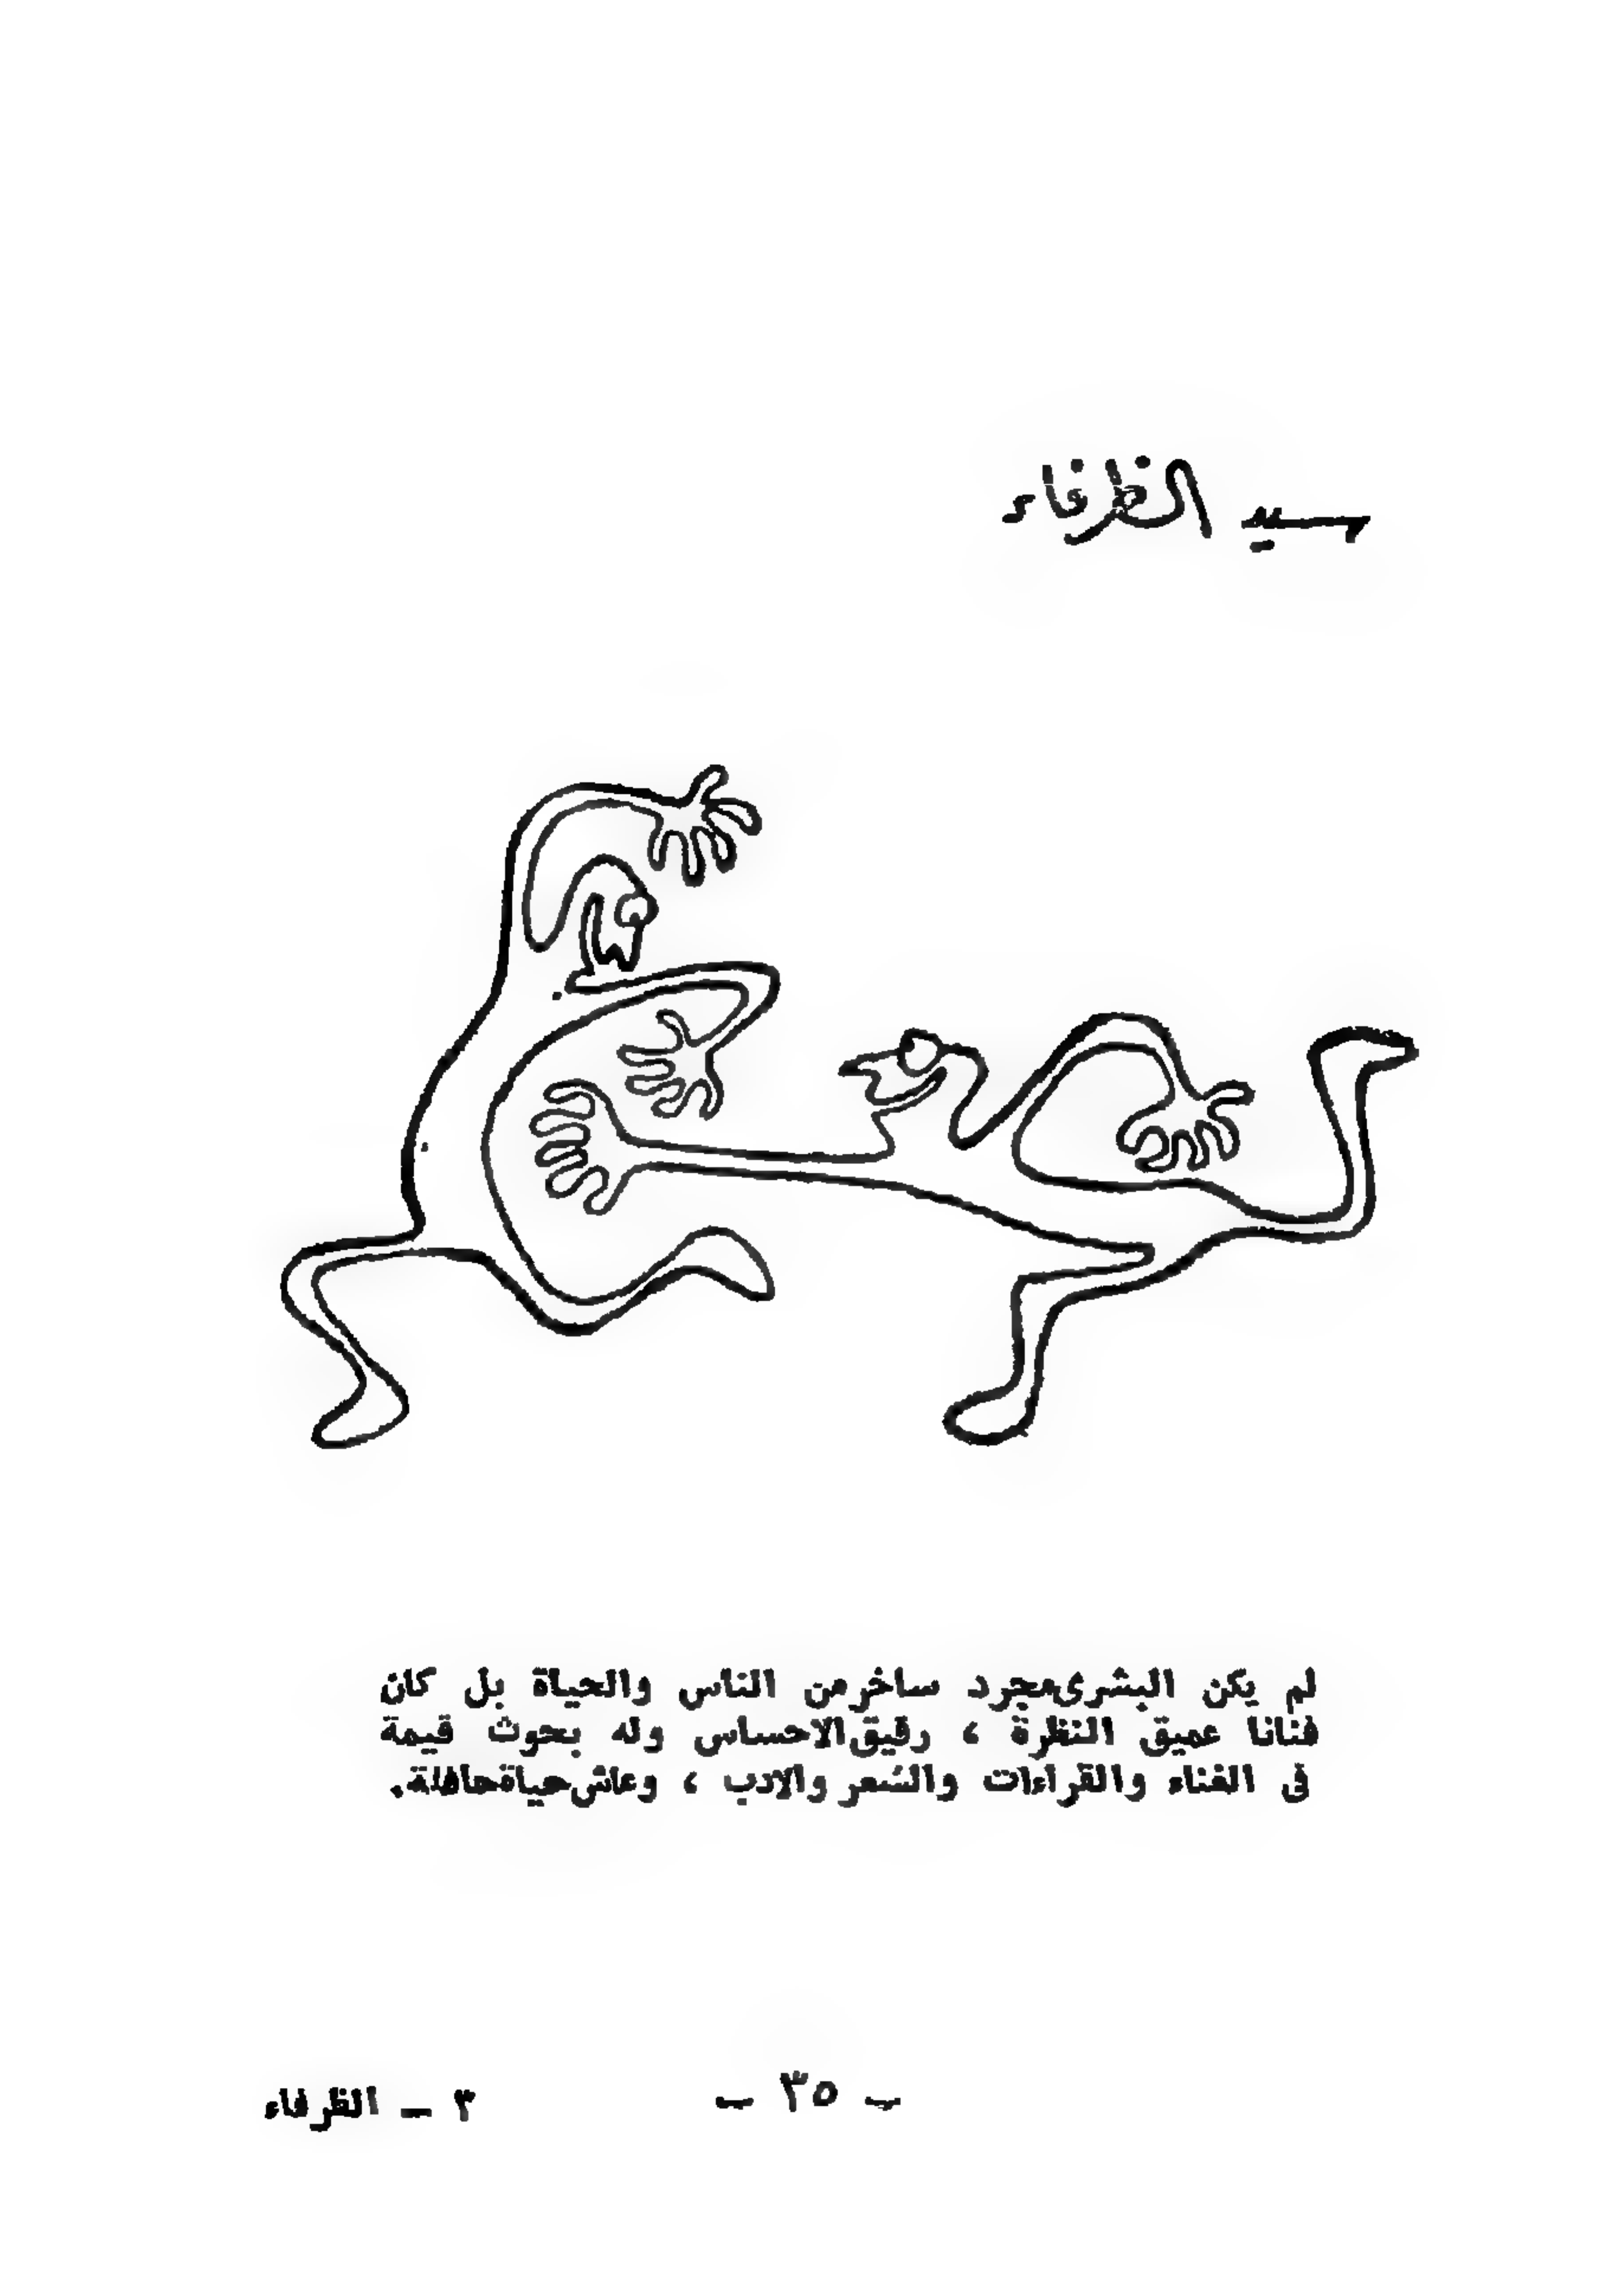 سيد الظرفاء
لم يكن البشرى مجرد ساخر من الناس والحياة بل كان
فنانا عميق النظرة ، رقيق الاحساس وله بحوث قيمة
فى الغناء والقراءات والشعر والادب ، وعاش حياة حافلة.
- ٣٥ -
٣ - الظرفاء